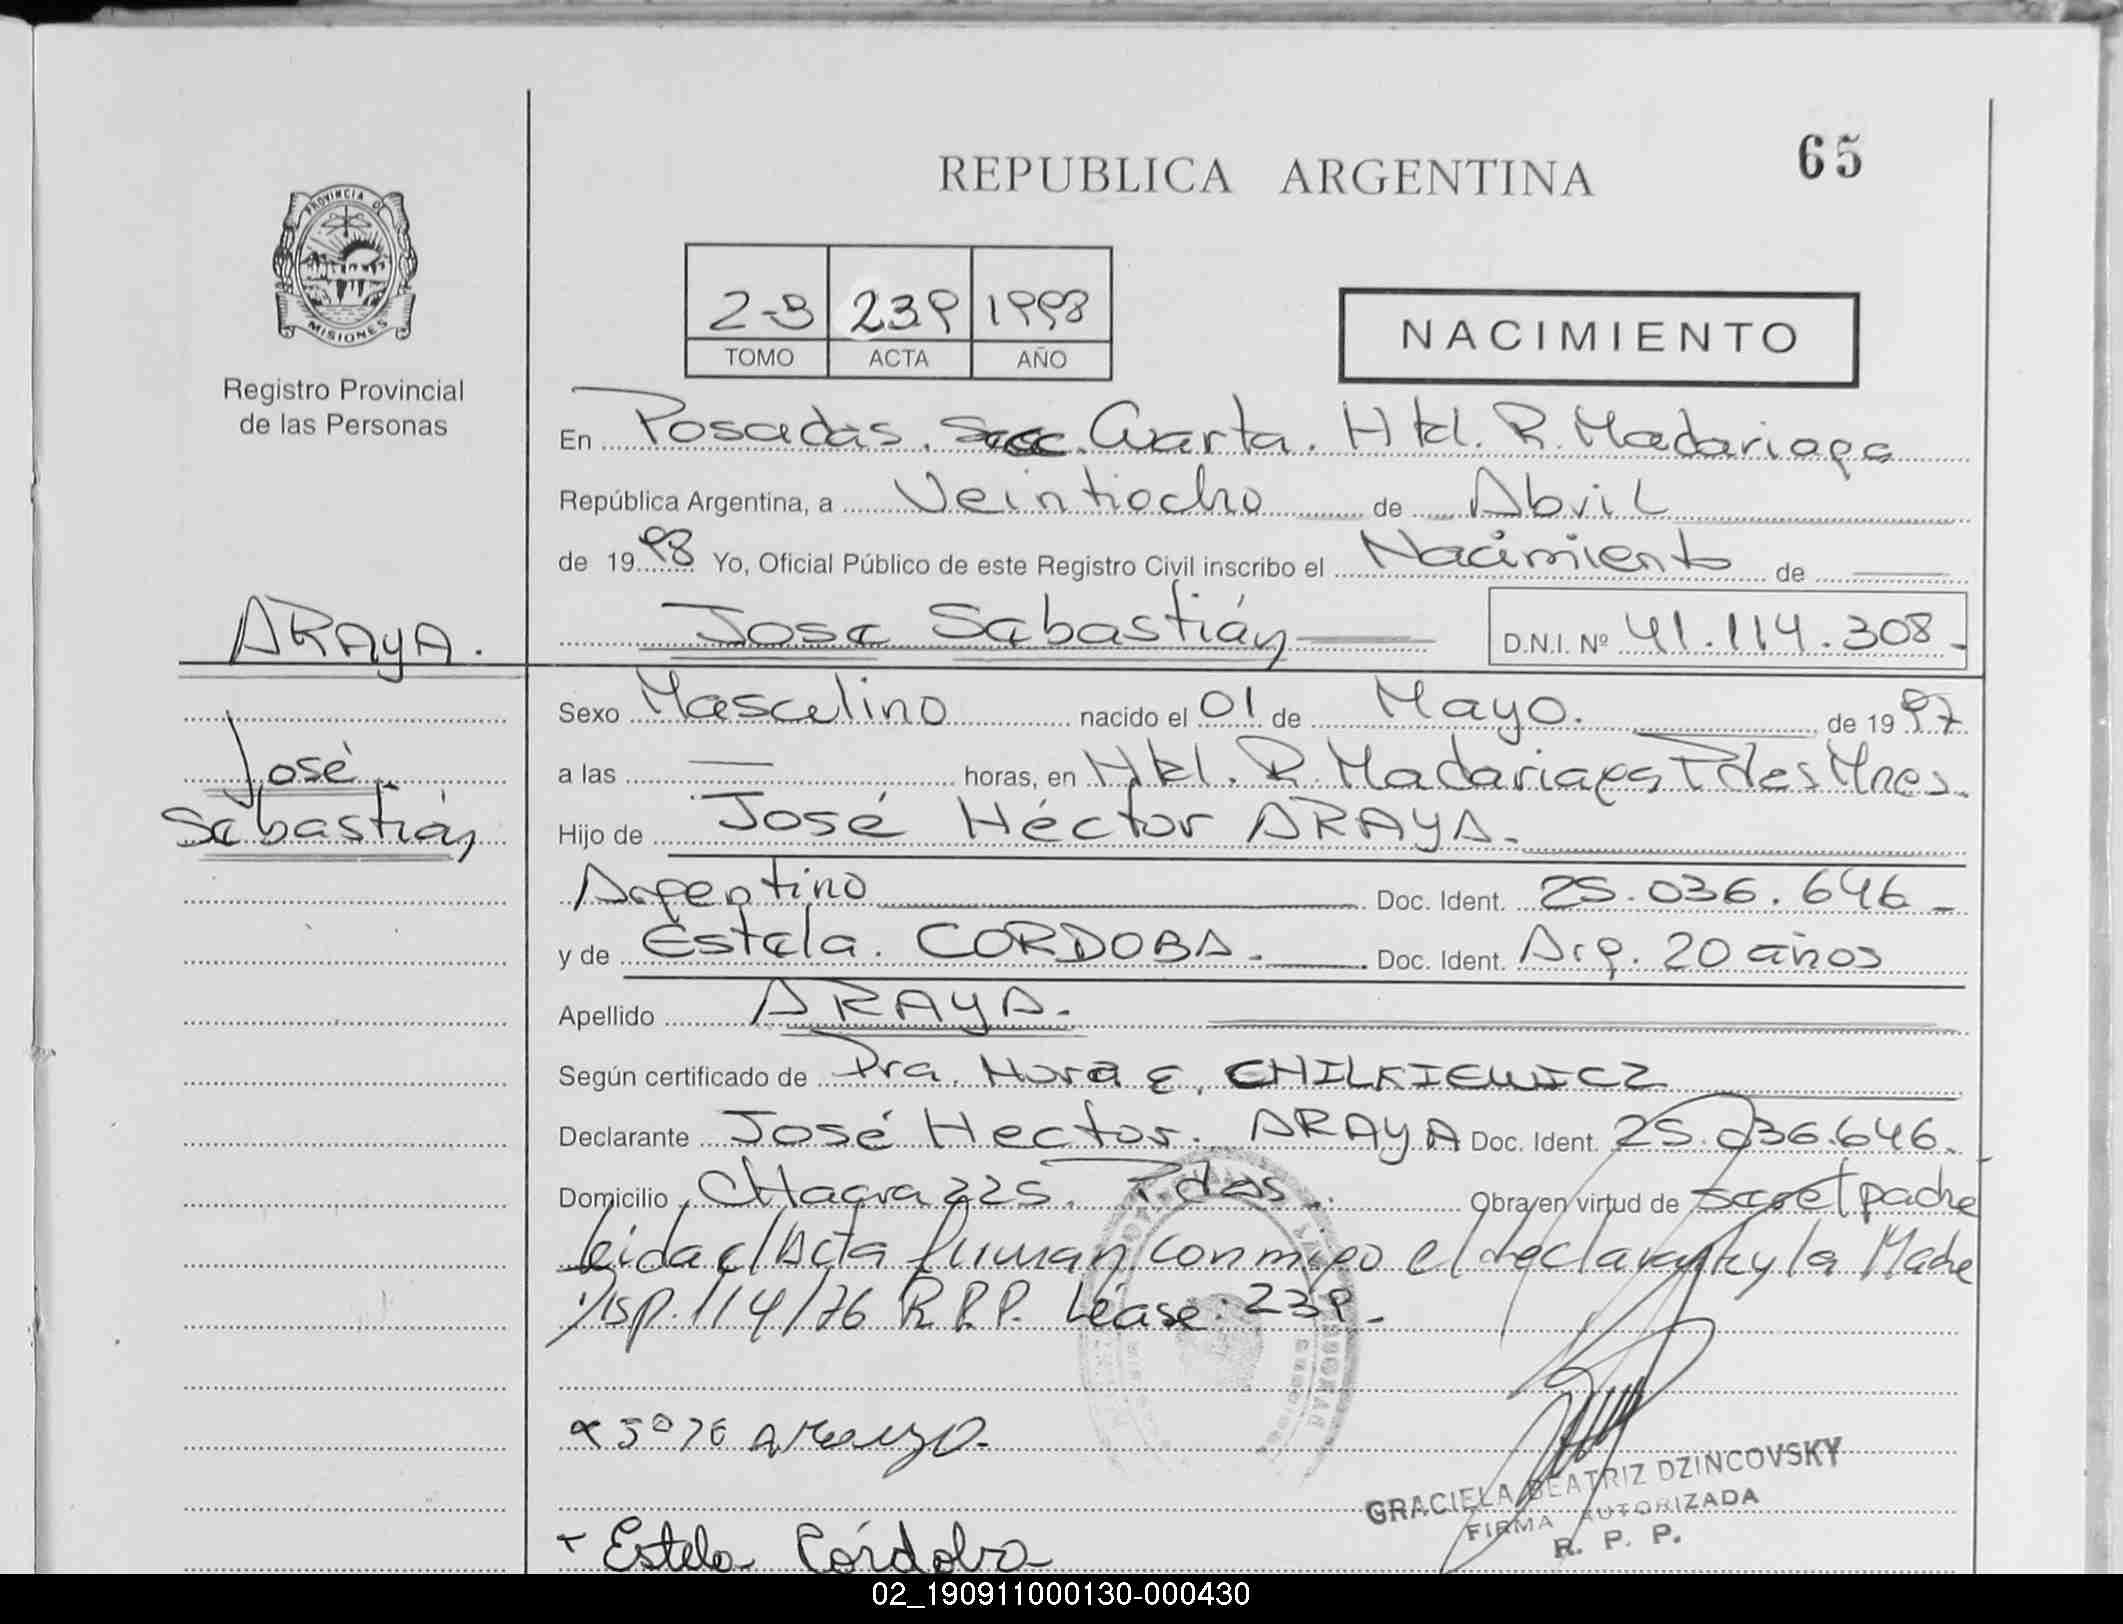 65
REPUBLICA ARGENTINA
PROVINCIA DE
MISIONES
Registro Provincial
de las Personas
2-B 239 1998
TOMO ACTA AÑO
NACIMIENTO
En Posadas. Secc. Cuarta. Htal. R. Madariaga
República Argentina, a Veintiocho de Abril
de 1998 Yo, Oficial Público de este Registro Civil inscribo el Nacimiento de
ARAYA. José Sebastián D.N.I. Nº 41.114.308-
Sexo Masculino nacido el 01 de Mayo. de 1997
José a las — horas, en Htal. R. Madariaga Pdas Mnes.
Sebastián Hijo de José Héctor ARAYA.
Argentino Doc. Ident. 25.036.646-
y de Estela. CORDOBA. Doc. Ident. Arg. 20 años
Apellido ARAYA.
Según certificado de Dra. Nora E. CHILKIEWICZ
Declarante José Hector. ARAYA Doc. Ident. 25.036.646.
Domicilio CHacra 225. Pdas. Obra en virtud de ser el padre
leida el Acta firman conmigo el declarante y la Madre
Disp. 114/76 R.P.P. Léase: 239.-
Araya
GRACIELA BEATRIZ DZINCOVSKY
FIRMA AUTORIZADA
R. P. P.
Estela Córdoba
02_190911000130-000430